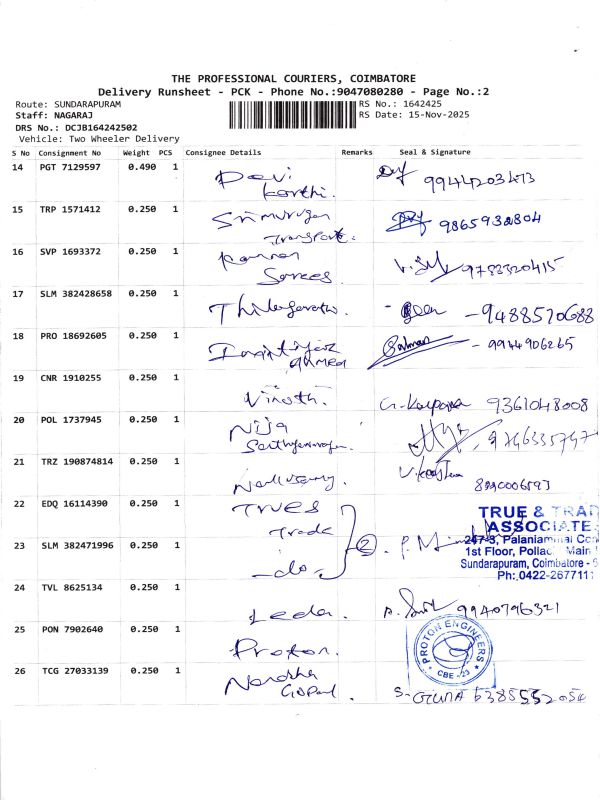 THE PROFESSIONAL COURIERS, COIMBATORE
Delivery Runsheet - PCK - Phone No.:9047080280 - Page No.:2
Route: SUNDARAPURAM RS No.: 1642425
Staff: NAGARAJ RS Date: 15-Nov-2025
DRS No.: DCJB164242502
Vehicle: Two Wheeler Delivery
S No Consignment No Weight PCS Consignee Details Remarks Seal & Signature
14 PGT 7129597 0.490 1 Devi
Karthi.
15 TRP 1571412 0.250 1 Srimurugan 9865932804
Transport.
16 SVP 1693372 0.250 1 Kannan 9733320415
Sarees
17 SLM 382428658 0.250 1 - 9488570688
18 PRO 18692605 0.250 1 - 9944906265
Ahmed
19 CNR 1910255 0.250 1
Vinoth. G. Kalpana 9361048008
20 POL 1737945 0.250 1 Nija
21 TRZ 190874814 0.250 1
22 EDQ 16114390 0.250 1 True &
Trade
TRUE & TRAD
ASSOCIATE
23 SLM 382471996 0.250 1 -do- 2
247-3, Palaniammal Com
1st Floor, Pollac Main
Sundarapuram, Coimbatore -
Ph:.0422-2677111
24 TVL 8625134 0.250 1
Leda. 9940796321
25 PON 7902640 0.250 1
Proton.
PROTON ENGINEERS
CBE - 23
26 TCG 27033139 0.250 1
Gopal. S-GUNA 6385552054